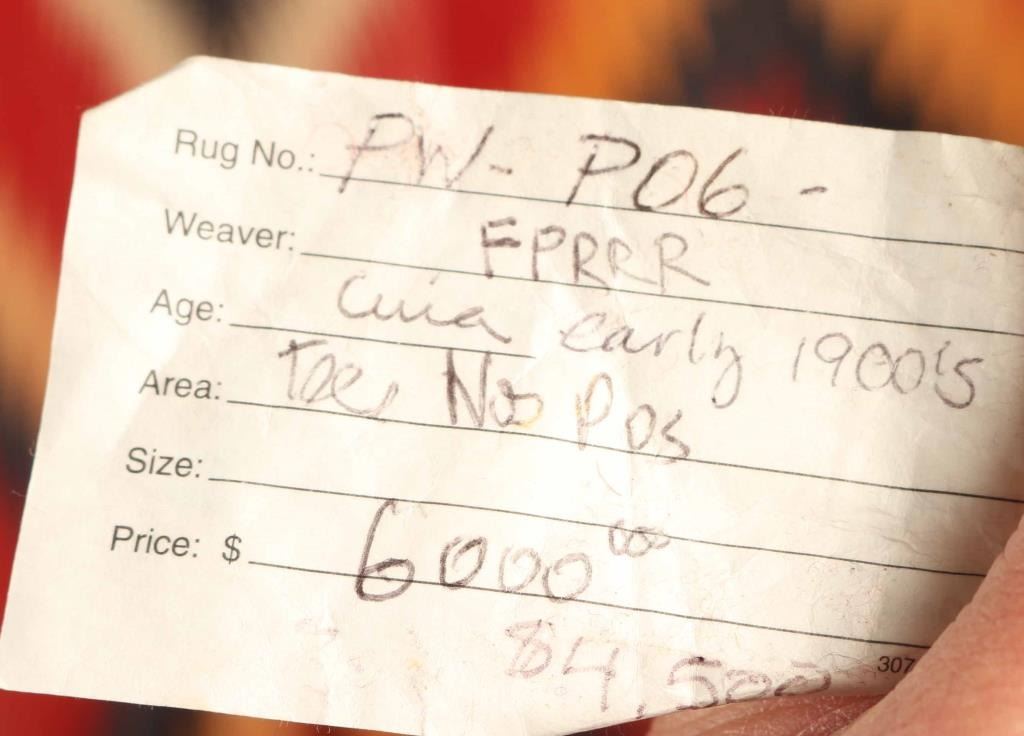 Rug No.: PW- P06 -
Weaver: FPRRR
Age: Circa early 1900's
Area: Tee Nos Pos
Size:
Price: $ 6000 00
$4,500
307